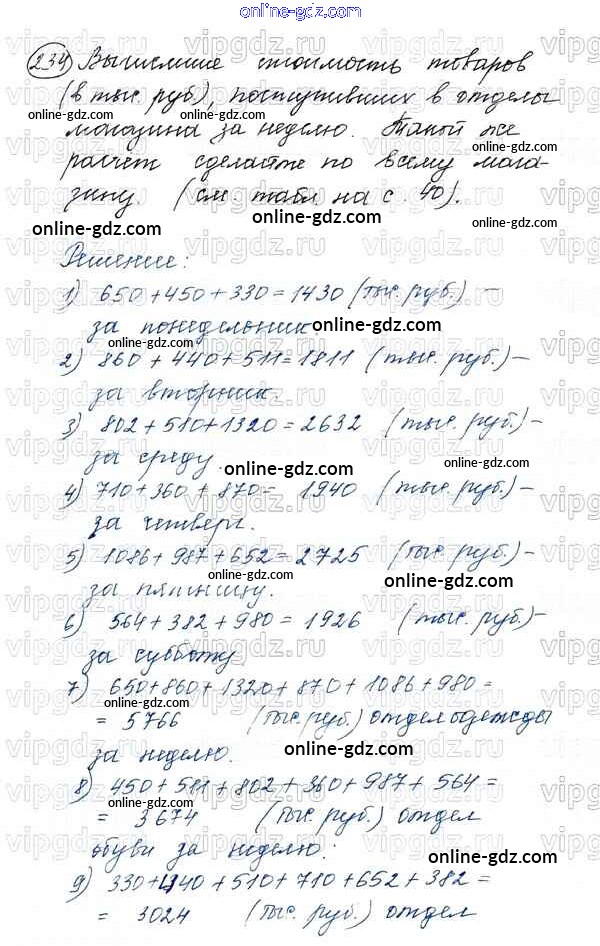 online-gdz.com
234 Вычислите стоимость товаров
(в тыс. руб.), поступивших в отделы
магазина за неделю. Такой же
расчёт сделайте по всему мага-
зину. (см. табл на с. 40).
Решение:
1) 650+450+330=1430 (тыс. руб.) –
за понедельник.
2) 860+440+511=1811 (тыс. руб.) –
за вторник.
3) 802+510+1320=2632 (тыс. руб.) –
за среду.
4) 710+360+870= 1940 (тыс. руб.) –
за четверг.
5) 1086+987+652=2725 (тыс. руб.) –
за пятницу.
6) 564+382+980=1926 (тыс. руб.) –
за субботу
7) 650+860+1320+870+1086+980=
= 5766 (тыс. руб.) отдел одежды
за неделю.
8) 450+511+802+360+987+564=
= 3674 (тыс. руб.) отдел
обуви за неделю.
9) 330+440+510+710+652+382=
= 3024 (тыс. руб.) отдел